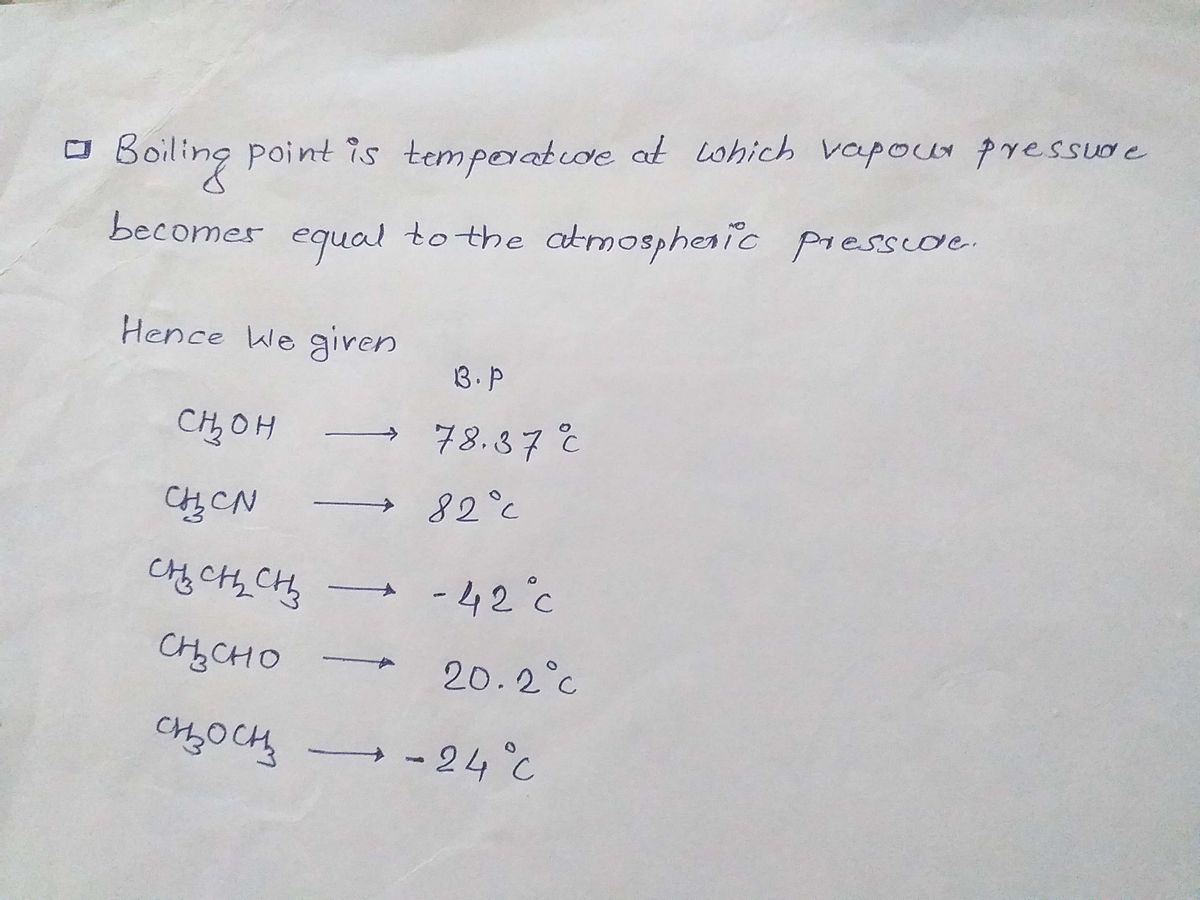 Boiling point is temperature at which vapour pressure
becomes equal to the atmospheric pressure.
Hence We given
B.P
CH₃OH → 78.37 °C
CH₃CN → 82°C
CH₃CH₂CH₃ → -42°C
CH₃CHO → 20.2°C
CH₃OCH₃ → -24°C